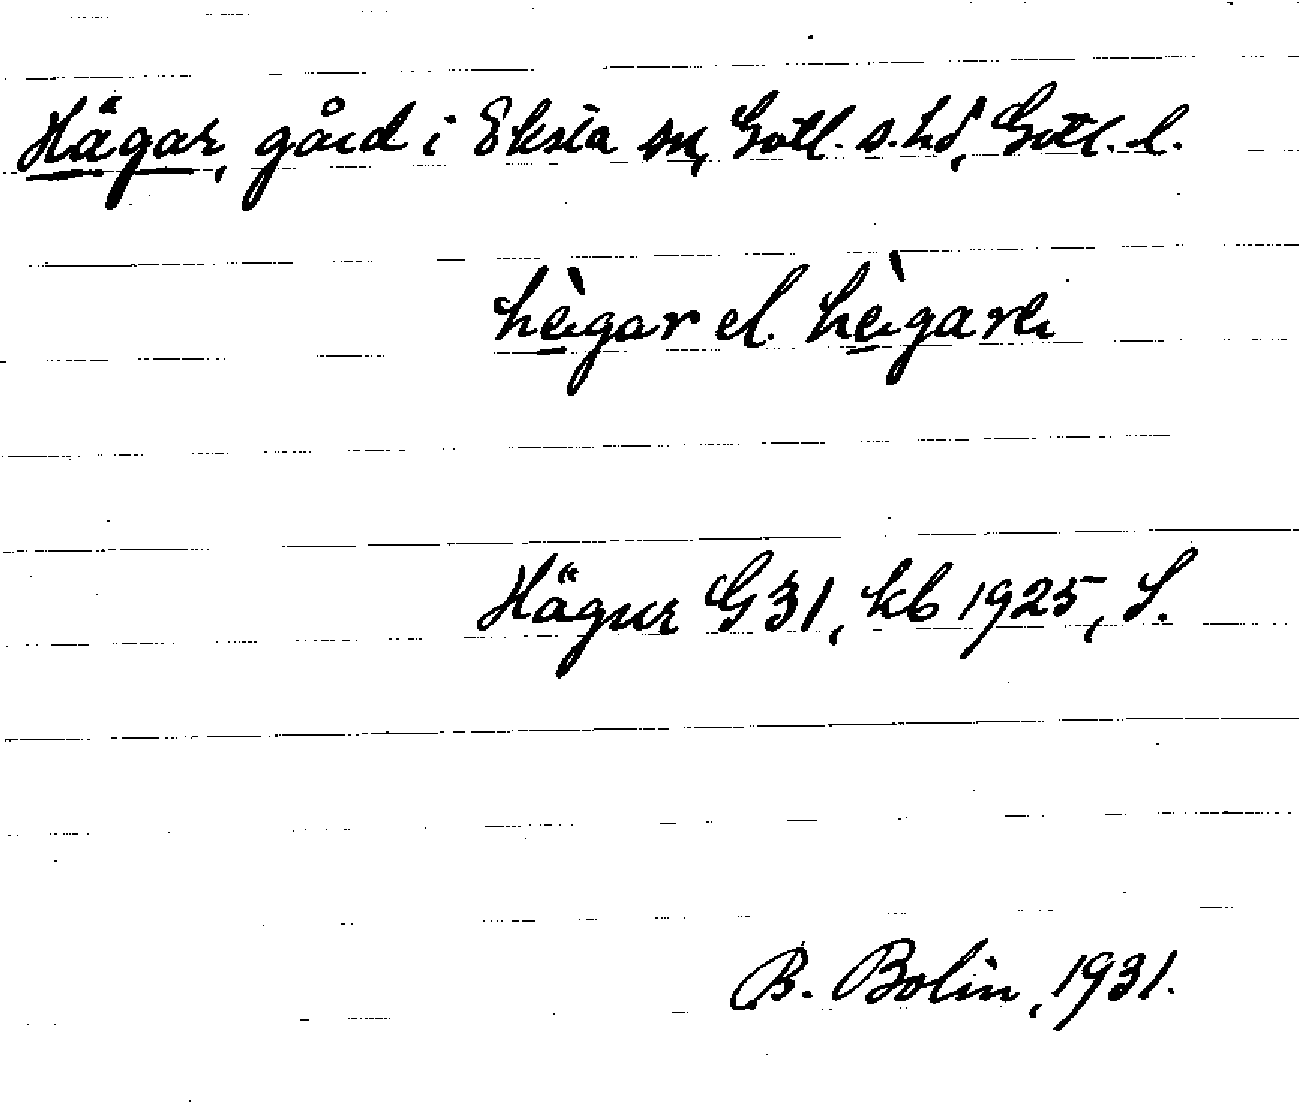 Hägar, gård i Eksta sn, Gotl. s. hd, Gotl. l.
hègar el. hègara
Hägur G 31, kb 1925, S.
B. Bolin, 1931.